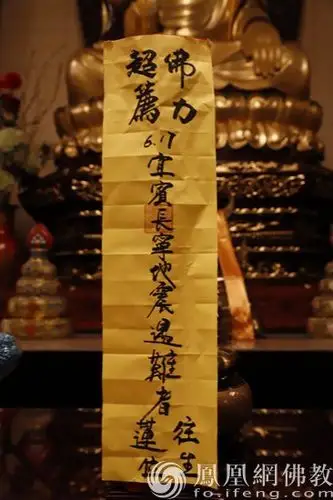 佛力
超薦
6.17宜賓長寧地震遇難者
往生
蓮位
鳳凰網佛教
fo.ifeng.com